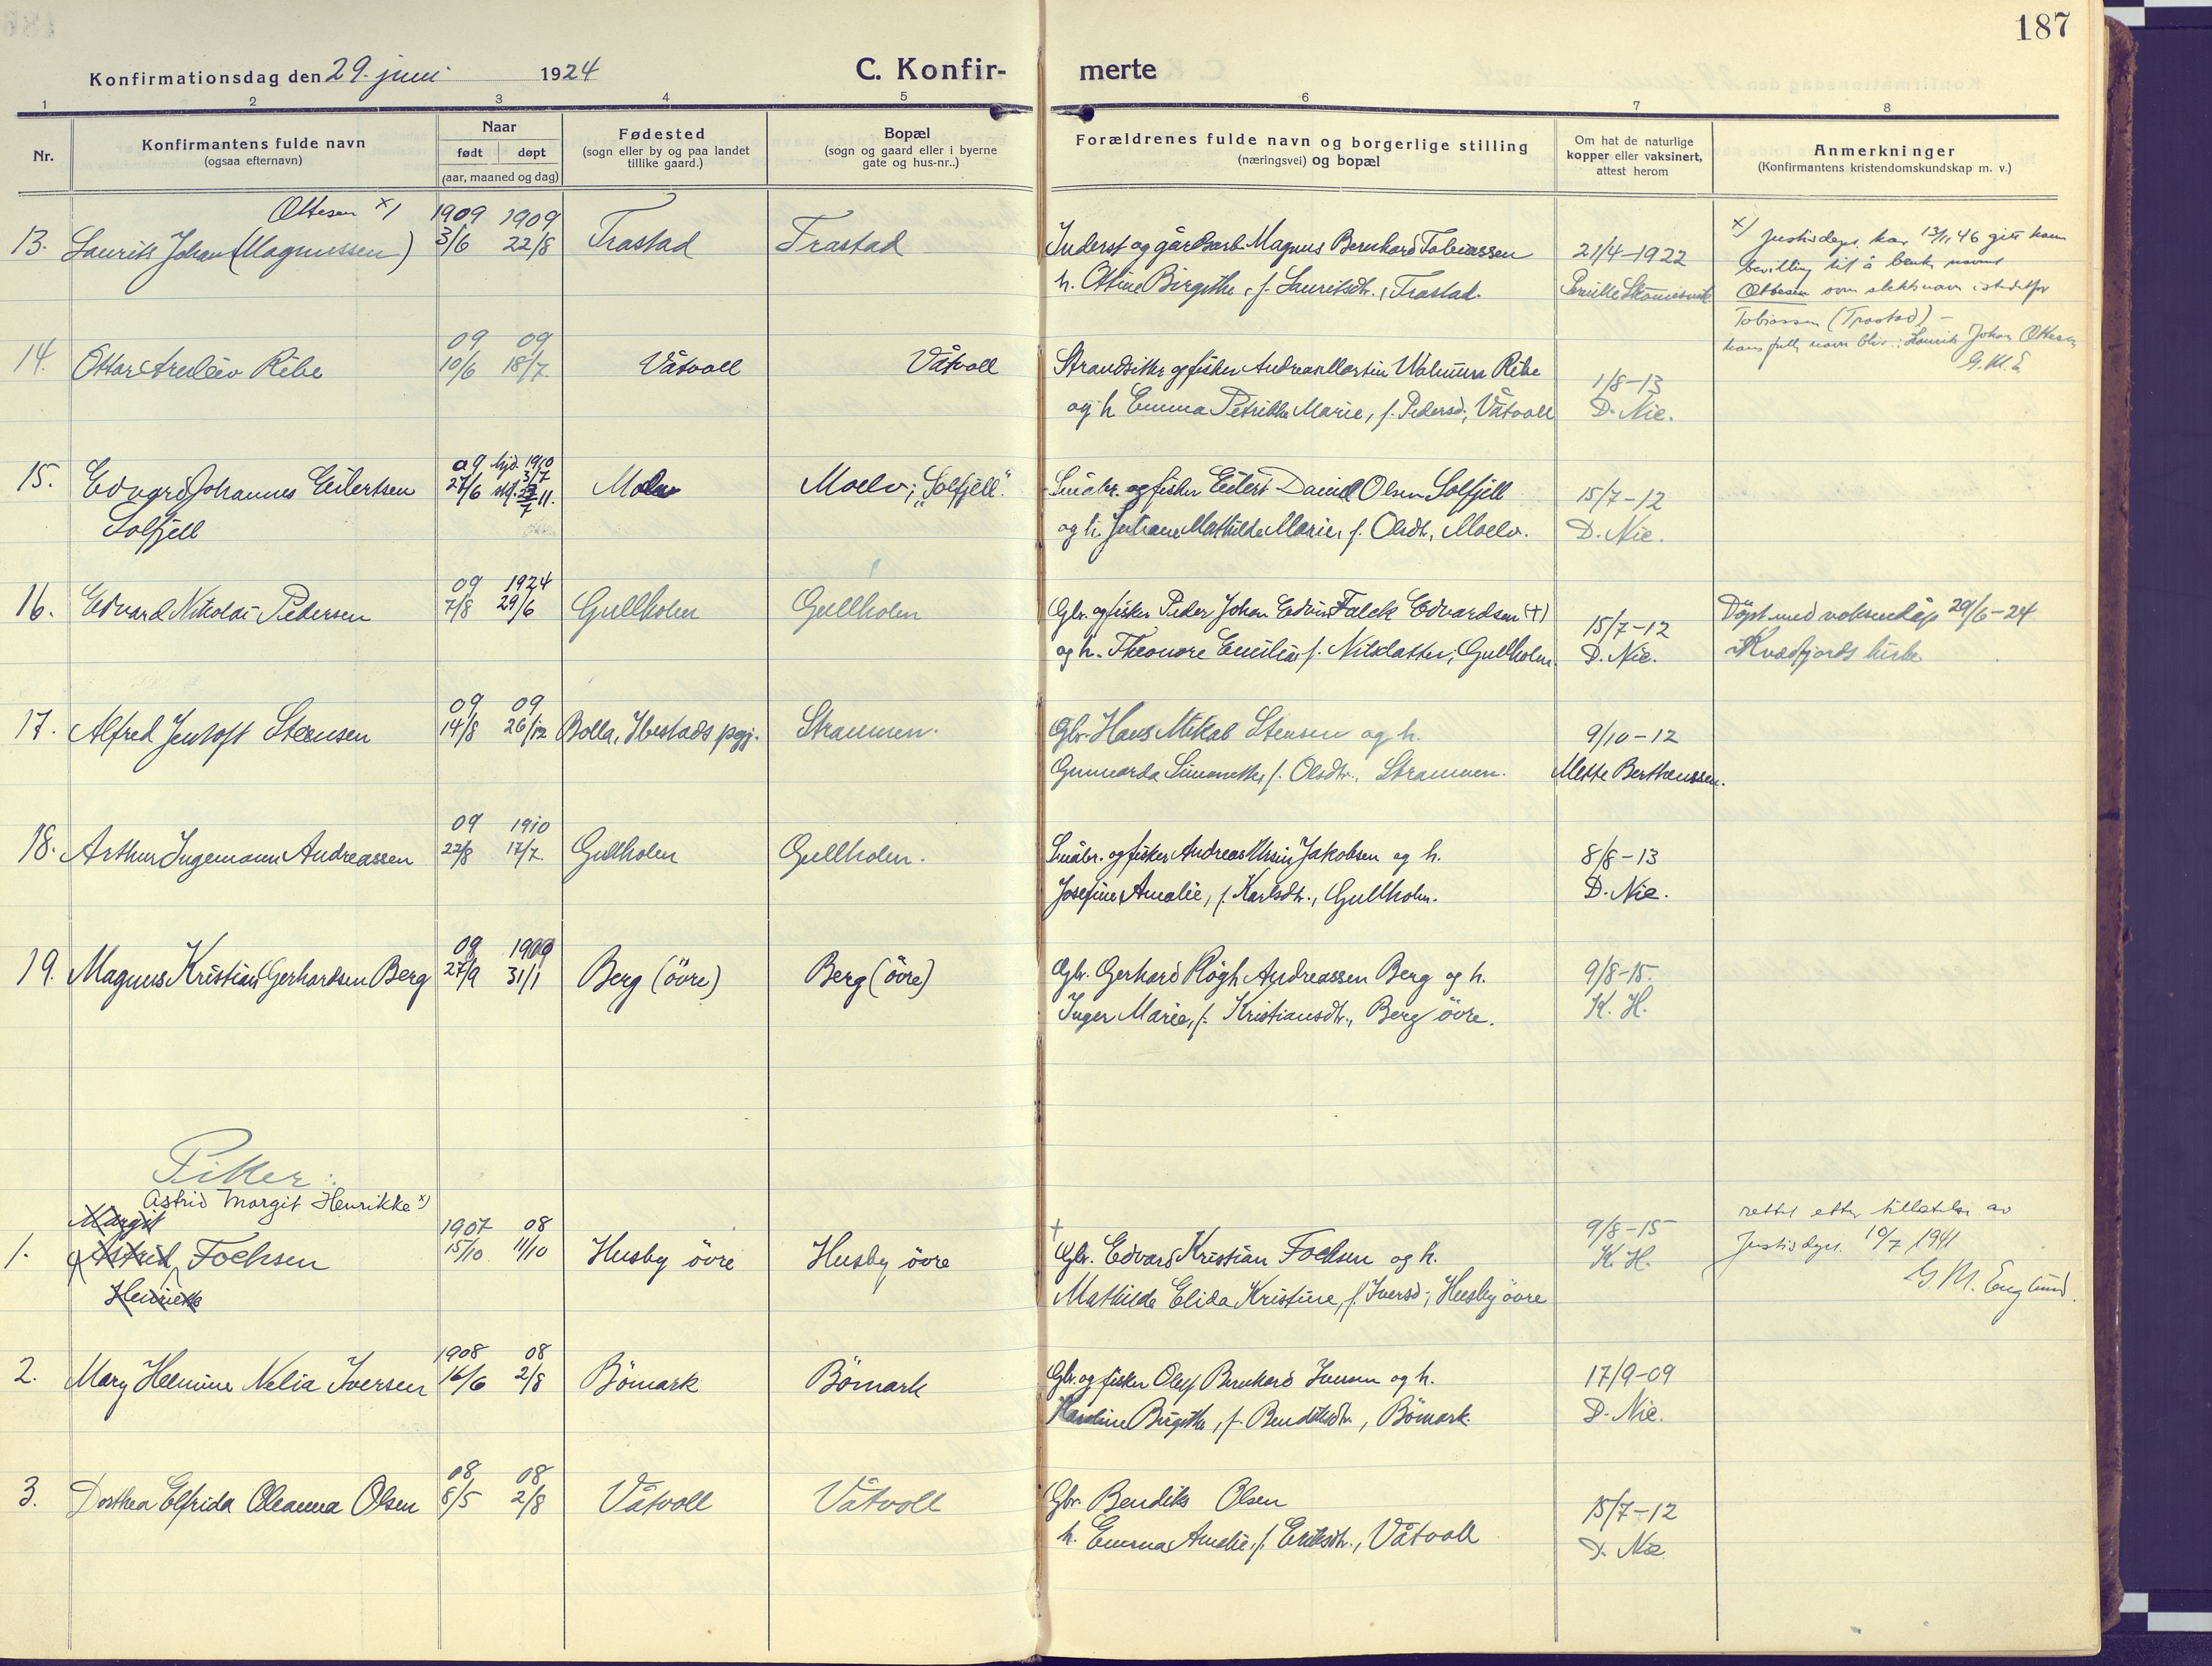 187
Konfirmationsdag den 29. juni 1924
C. Konfirmerte
1 2 3 4 5 6 7 8
Nr.
Konfirmantens fulde navn
(ogsaa efternavn)
Naar
født døpt
(aar, maaned og dag)
Fødested
(sogn eller by og paa landet
tillike gaard.)
Bopæl
(sogn og gaard eller i byerne
gate og hus-nr..)
Forældrenes fulde navn og borgerlige stilling
(næringsvei) og bopæl
Om hat de naturlige
kopper eller vaksinert,
attest herom
Anmerkninger
(Konfirmantens kristendomskundskap m. v.)
Ottesen x) 1909 1909
13. Laurits Johan (Magnussen) 3/6 22/8 Trastad Trastad Inderst og gårdsarb. Magnus Bernhard Tobiassen 21/4-1922
h. Ottine Birgithe, f. Lauritsdtr., Trastad.
x) Justisdept. har 13/11 46 gitt ham
bevilling til å bruke navnet
Ottesen som slektsnavn istedetfor
Tobiassen (Trastad) -
hans fulle navn blir: Laurits Johan Ottesen
G.M.E
09 09
14. Ottar Arnleiv Ribe 10/6 18/7 Våtvoll Våtvoll Strandsitter og fisker Andreas Martin Ribe 1/8-13
og h. Emma Petrikke Marie, f. Pedersd., Våtvoll D. Nic.
09 hjd. 1910
15. Edvard Johannes Eilertsen 27/6 3/7 11. Moelv Moelv; "Solfjell." Småbr. og fisker Eilert Daniel Olsen Solfjell 15/7-12
Solfjell og h. Mathilde Marie, f. Olsdtr, Moelv. D. Nic.
09 1924
16. Edvard Nikolai Pedersen 7/8 29/6 Gullholm Gullholm Gbr. og fisker Peder Johan Edvin Falck Edvardsen (†) 15/7-12 Döpt med voksendåp 29/6-24
og h. Theonore Emilie f. Nilsdatter, Gullholm. D. Nic. i Kvæfjords kirke
09 09
17. Alfred Jentoft Steensen 14/8 26/12 Bolla, Ibestads pgj. Straumen. Gbr. Hans Mikal Stensen og h. 9/10-12
Gunnarda Simonette, f. Olsdtr., Straumen. Mette Bertheussen.
09 1910
18. Arthur Ingemann Andreassen 22/8 17/7 Gullholm Gullholm. Småbr. og fisker Andreas Ursin Jakobsen og h. 8/8-13
Josefine Amalie, f. Karlsdtr., Gullholm. D. Nic.
09 1909
19. Magnus Kristian Gerhardsen Berg 27/9 31/1 Berg (övre) Berg (övre) Gbr. Gerhard Høgh Andreassen Berg og h. 9/8-15.
Inger Marie, f. Kristiansdtr., Berg övre. K. H.
Piker:
Astrid Margit Henrikke x)
Margit 1907 08
1. Astrid Fochsen 15/10 11/10 Husby övre Husby övre † Gbr. Edvard Kristian Fochsen og h. 9/8-15 K. H.
Henrikke Mathilde Elida Kristine, f. Iversd., Husby övre
rettet etter tillatelse av
Justisdept. 10/7 1941
G. M. Englund.
1908 08
2. Mary Helmine Nelia Iversen 16/6 2/8 Bömark Bömark Gbr. og fisker Oluf Bernhard Iversen og h. 17/9-09
Karoline Birgitte, f. Bendiksdtr., Bömark. D. Nic.
08 08
3. Dorthea Elfrida Oleanna Olsen 8/5 2/8 Våtvoll Våtvoll Gbr. Bendiks Olsen 15/7-12
h. Emma Amalie, f. Eriksdtr., Våtvoll D. Nic.